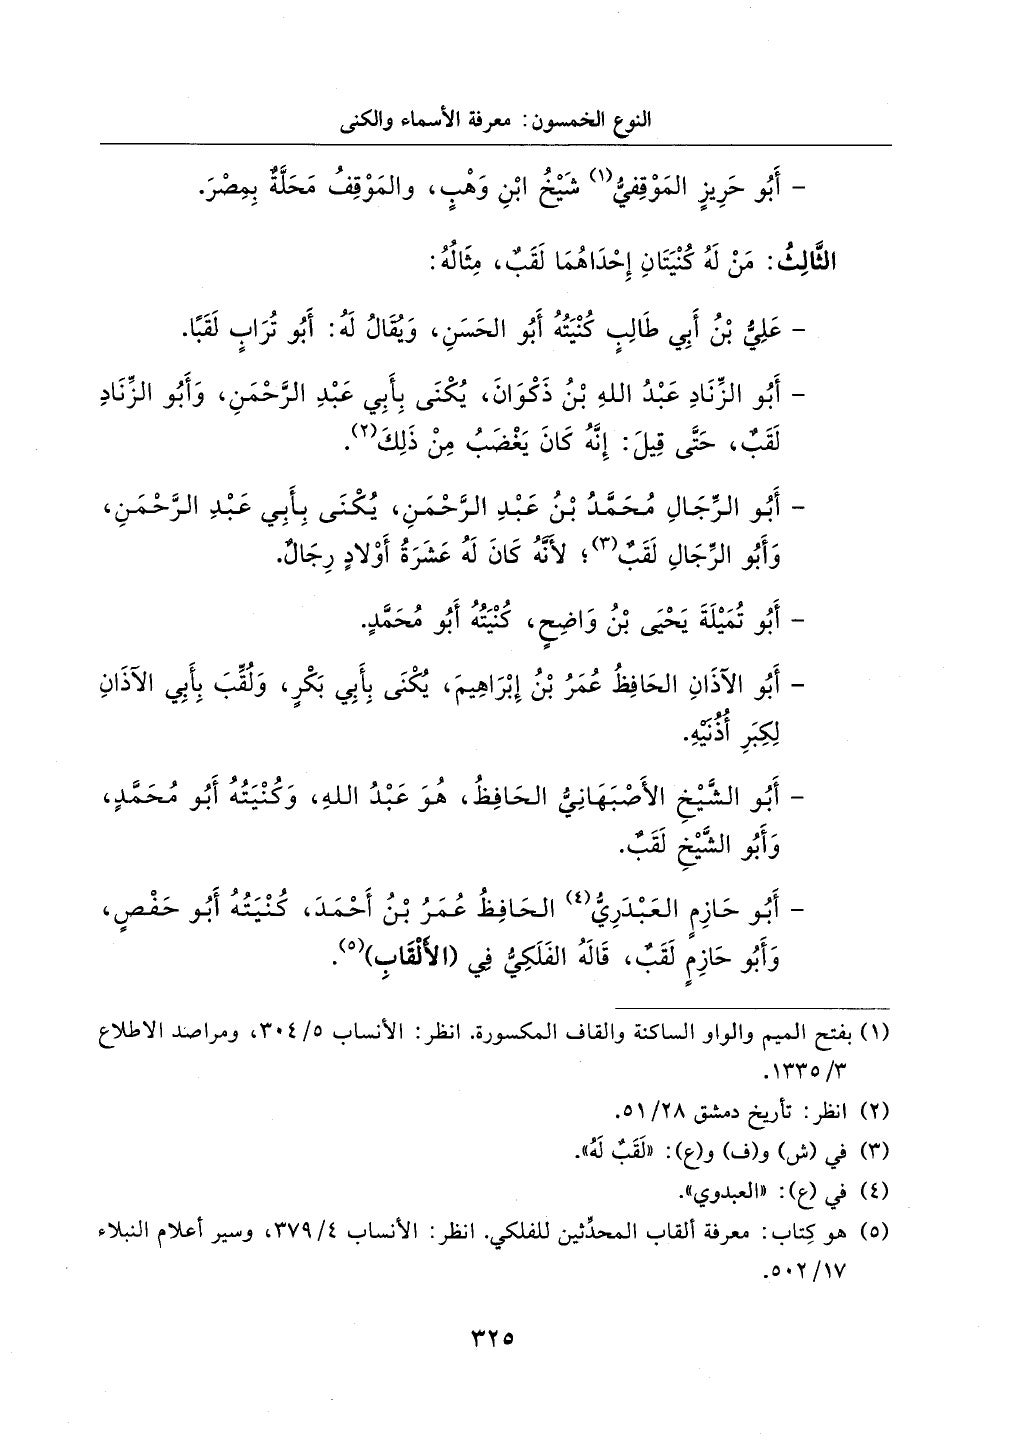 النوع الخمسون: معرفة الأسماء والكنى
- أَبُو حَرِيزٍ المَوْقِفِيُّ(١) شَيْخُ ابْنِ وَهْبٍ، والمَوْقِفُ مَحَلَّةٌ بِمِصْرَ.
الثَّالِثُ: مَنْ لَهُ كُنْيَتَانِ إِحْدَاهُمَا لَقَبٌ، مِثَالُهُ:
- عَلِيُّ بْنُ أَبِي طَالِبٍ كُنْيَتُهُ أَبُو الحَسَنِ، وَيُقَالُ لَهُ: أَبُو تُرَابٍ لَقَبًا.
- أَبُو الزِّنَادِ عَبْدُ اللهِ بْنُ ذَكْوَانَ، يُكْنَى بِأَبِي عَبْدِ الرَّحْمَنِ، وَأَبُو الزِّنَادِ
لَقَبٌ، حَتَّى قِيلَ: إِنَّهُ كَانَ يَغْضَبُ مِنْ ذَلِكَ(٢).
- أَبُو الرِّجَالِ مُحَمَّدُ بْنُ عَبْدِ الرَّحْمَنِ، يُكْنَى بِأَبِي عَبْدِ الرَّحْمَنِ،
وَأَبُو الرِّجَالِ لَقَبٌ(٣)؛ لأَنَّهُ كَانَ لَهُ عَشَرَةُ أَوْلادٍ رِجَالٌ.
- أَبُو تُمَيْلَةَ يَحْيَى بْنُ وَاضِحٍ، كُنْيَتُهُ أَبُو مُحَمَّدٍ.
- أَبُو الآذَانِ الحَافِظُ عُمَرُ بْنُ إِبْرَاهِيمَ، يُكْنَى بِأَبِي بَكْرٍ، وَلُقِّبَ بِأَبِي الآذَانِ
لِكِبَرِ أُذُنَيْهِ.
- أَبُو الشَّيْخِ الأَصْبَهَانِيُّ الحَافِظُ، هُوَ عَبْدُ اللهِ، وَكُنْيَتُهُ أَبُو مُحَمَّدٍ،
وَأَبُو الشَّيْخِ لَقَبٌ.
- أَبُو حَازِمٍ العَبْدَرِيُّ(٤) الحَافِظُ عُمَرُ بْنُ أَحْمَدَ، كُنْيَتُهُ أَبُو حَفْصٍ،
وَأَبُو حَازِمٍ لَقَبٌ، قَالَهُ الفَلَكِيُّ فِي (الأَلْقَابِ)(٥).
(١) بفتح الميم والواو الساكنة والقاف المكسورة. انظر: الأنساب ٣٠٤/٥، ومراصد الاطلاع
١٣٣٥/٣.
(٢) انظر: تأريخ دمشق ٥١/٢٨.
(٣) في (ش) و(ف) و(ع): «لَقَبٌ لَهُ».
(٤) في (ع): «العبدوي».
(٥) هو كِتاب: معرفة ألقاب المحدِّثين للفلكي. انظر: الأنساب ٣٧٩/٤، وسير أعلام النبلاء
٥٠٢/١٧.
٣٢٥